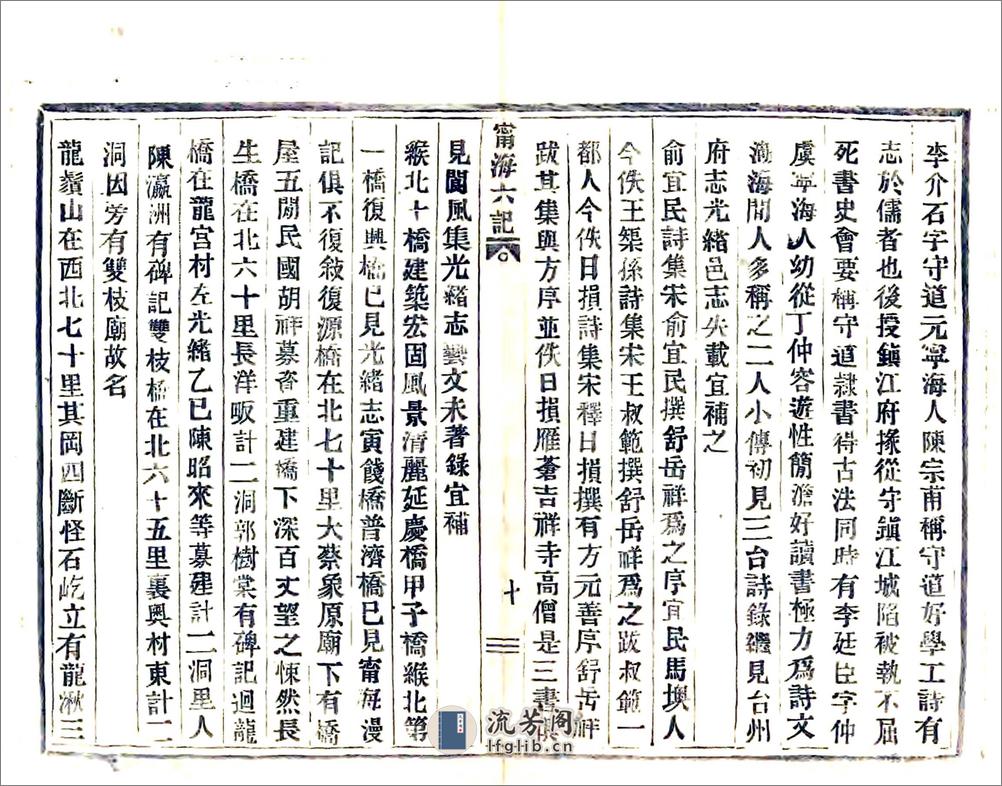 李介石字守道元寧海人陳宗甫稱守道好學工詩有
志於儒者也後授鎮江府掾從守鎮江城陷被執不屈
死書史會要稱守道隸書得古法同時有李廷臣字仲
虞寧海人幼從丁仲容遊性簡澹好讀書極力為詩文
海間人多稱之二人小傳初見三台詩錄繼見台州
府志光緒邑志失載宜補之
俞宜民詩集宋俞宜民撰舒岳祥為之序宜民馬㘭人
今佚王槃孫詩集宋王叔範撰舒岳祥為之跋叔範一
都人今佚日損詩集宋釋日損撰有方元善序舒岳祥
跋其集與方序並佚日損雁蒼吉祥寺高僧是三書
甯海六記
十
見閬風集光緒志藝文未著錄宜補
緱北十橋建築宏固風景清麗延慶橋甲子橋緱北第
一橋復興橋已見光緒志寅餞橋普濟橋已見甯海漫
記俱不復敍復源橋在北七十里大蔡象原廟下有橋
屋五間民國胡祥募資重建橋下深百丈望之悚然長
生橋在北六十里長洋畈計二洞郭樹棠有碑記迴龍
橋在龍宮村左光緒乙巳陳昭來等募建計二洞里人
陳瀛洲有碑記雙枝橋在北六十五里裏興村東計二
洞因旁有雙枝廟故名
龍鬚山在西北七十里其岡四斷怪石屹立有龍湫三
流芳阁
lfglib.cn